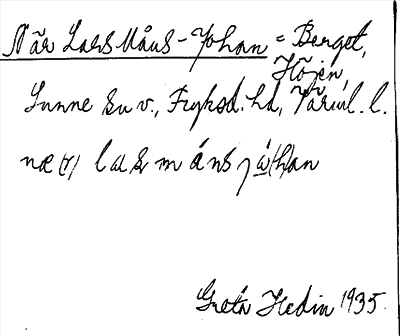 När Lars Måns-Johan = Berget,
Höjen,
Sunne sn v., Fryksd. hd, Värml. l.
næ(r) las máns jὠ(h)an
Greta Hedin 1935.